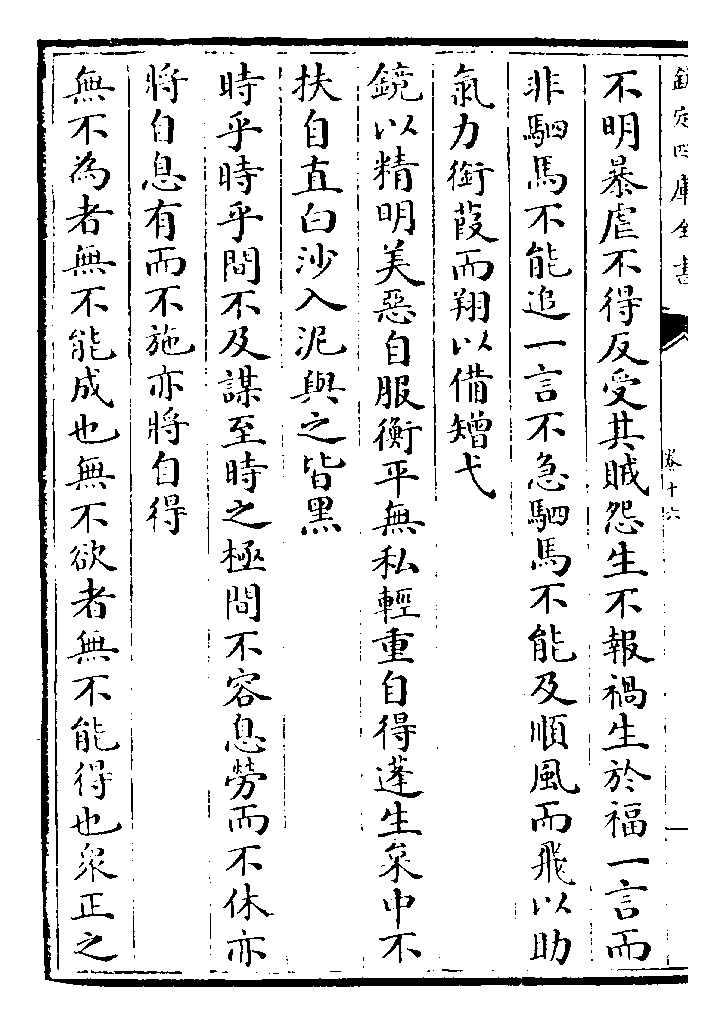 欽定四庫全書
卷十六
一
不明暴虐不得反受其賊怨生不報禍生於福一言而
非駟馬不能追一言不急駟馬不能及順風而飛以助
氣力銜葭而翔以備矰弋
鏡以精明美惡自服衡平無私輕重自得蓬生枲中不
扶自直白沙入泥與之皆黑
時乎時乎間不及謀至時之極間不容息勞而不休亦
將自息有而不施亦將自得
無不為者無不能成也無不欲者無不能得也衆正之